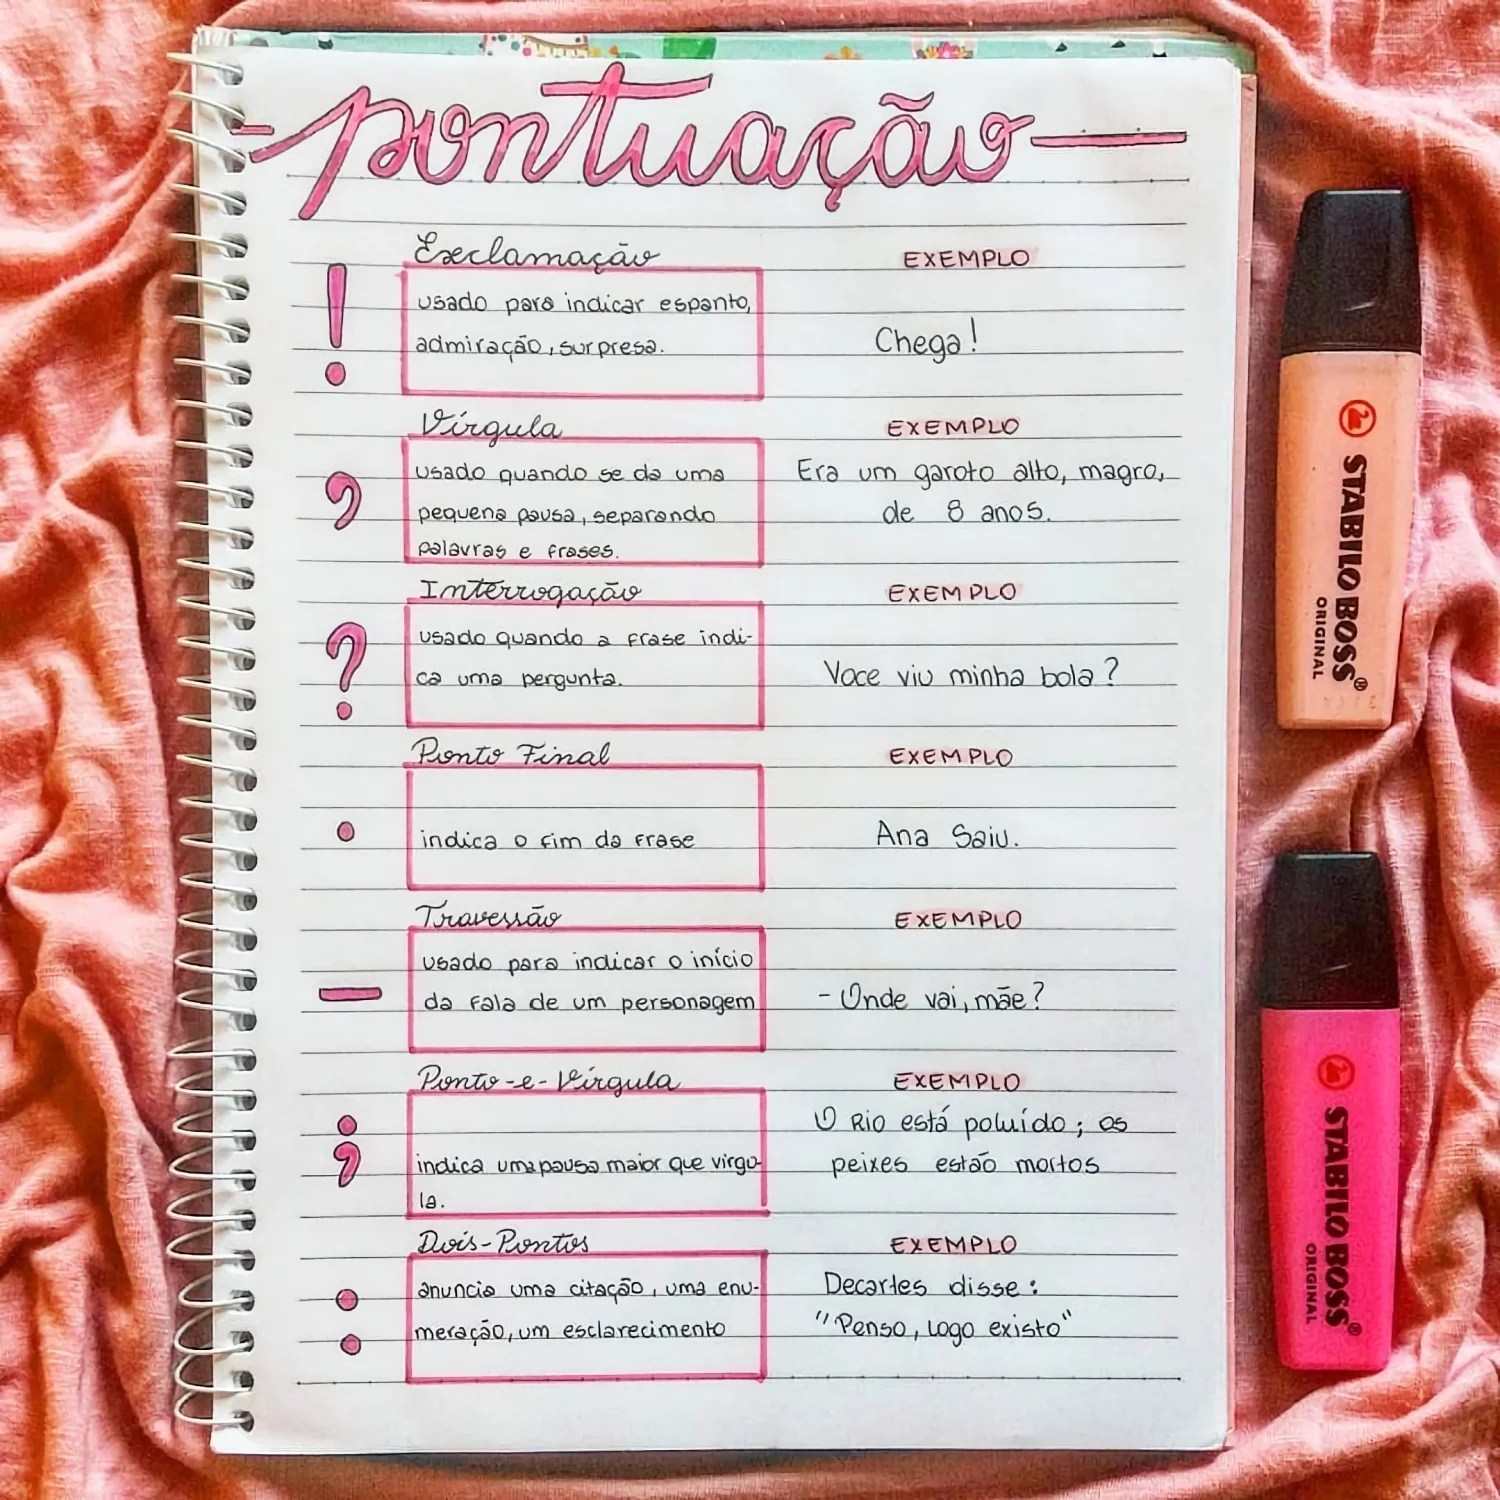 pontuação
Exclamação
EXEMPLO
!
usado para indicar espanto,
admiração, surpresa.
Chega!
Vírgula
EXEMPLO
,
usado quando se da uma
pequena pausa, separando
palavras e frases.
Era um garoto alto, magro,
de 8 anos.
Interrogação
EXEMPLO
?
usado quando a frase indi-
ca uma pergunta.
Voce viu minha bola?
Ponto Final
EXEMPLO
.
indica o fim da frase
Ana Saiu.
Travessão
EXEMPLO
—
usado para indicar o início
da fala de um personagem
- Onde vai, mãe?
Ponto-e-Vírgula
EXEMPLO
;
indica uma pausa maior que virgu-
la.
O Rio está poluído; os
peixes estão mortos
Dois-Pontos
EXEMPLO
:
anuncia uma citação, uma enu-
meração, um esclarecimento
Decartes disse:
"Penso, logo existo"
STABILO BOSS®
ORIGINAL
STABILO BOSS®
ORIGINAL